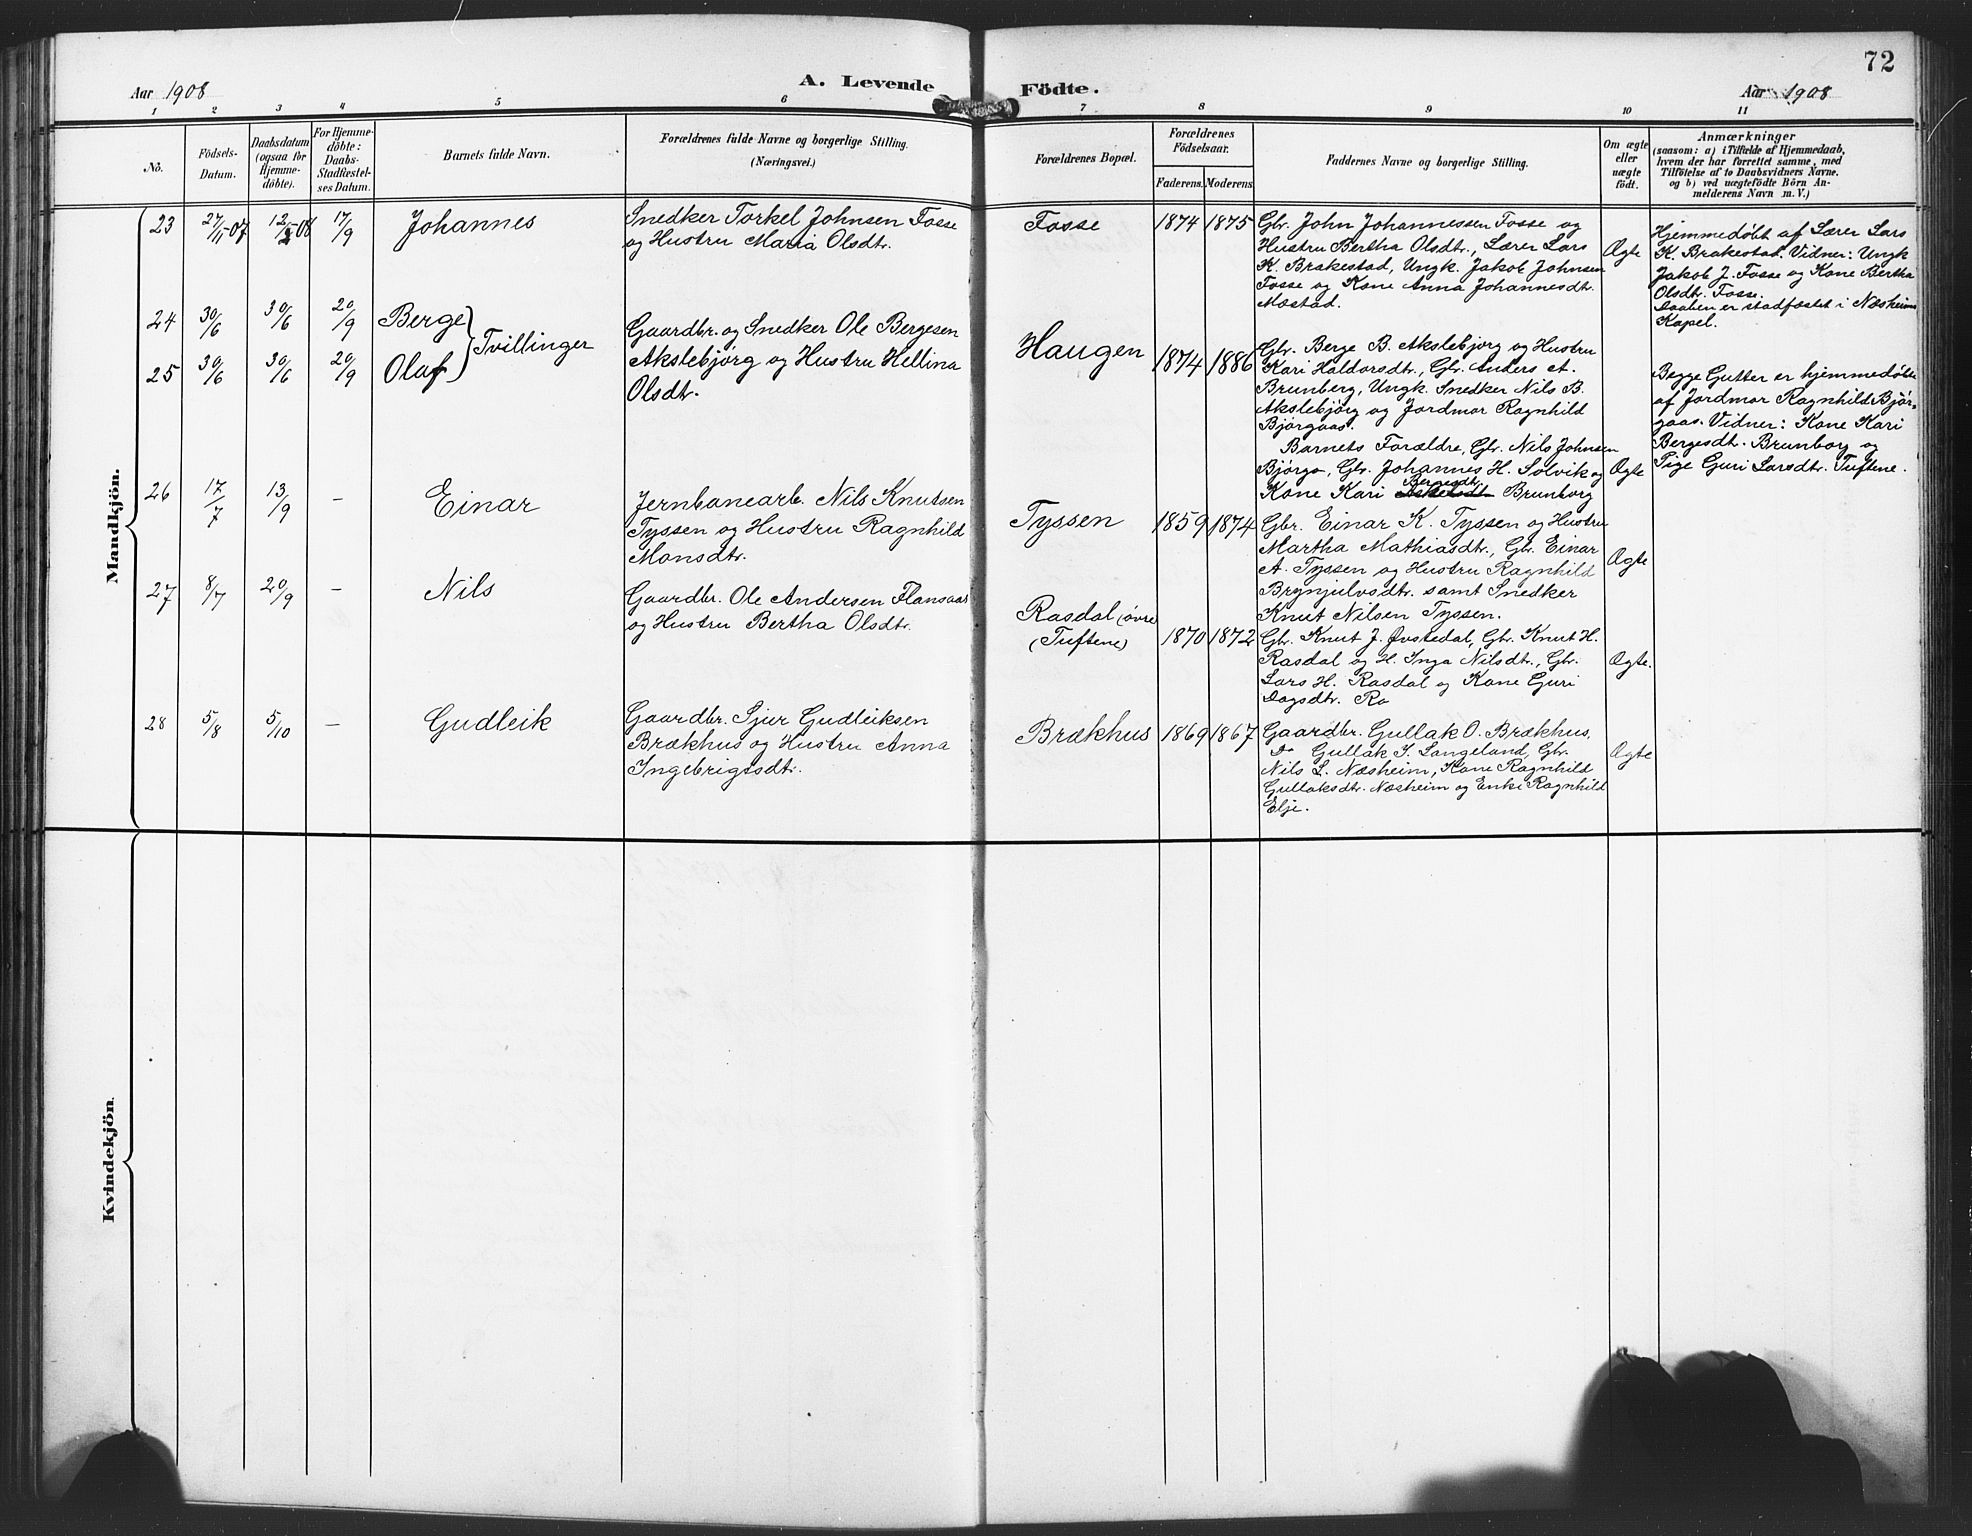 72
Aar 1908
A. Levende
Födte.
Aar 1908
1 2 3 4 5 6 7 8 9 10 11
No.
Födsels-
Datum.
Daabsdatum
(ogsaa for
Hjemme-
døbte).
For Hjemme-
döbte:
Daabs-
Stadfæstel-
ses Datum.
Barnets fulde Navn.
Forældrenes fulde Navne og borgerlige Stilling.
(Næringsvei.)
Forældrenes Bopæl.
Forældrenes
Födselsaar.
Faderens. Moderens.
Faddernes Navne og borgerlige Stilling.
Om ægte
eller
uægte
födt.
Anmærkninger
(saasom: a) i Tilfælde af Hjemmedaab,
hvem der har forrettet samme, med
Tilföielse af to Daabsvidners Navne.
og b) ved uægtefödte Börn An-
melderens Navn m. V.)
Mandkjön.
23 27/11-07 12/2-08 17/9 Johannes
Snedker Torkel Johnsen Fosse
og Hustru Maria Olsdtr.
Fosse 1874 1875
Gbr. John Johannessen Fosse og
Hustru Bertha Olsdtr., Lærer Lars
K. Brakestad, Ungk. Jakob Johnsen
Fosse og Kone Anna Johannesdtr.
Mæstad.
Ægte
Hjemmedøbt af Lærer Lars
K. Brakestad. Vidner: Ungk
Jakob J. Fosse og Kone Bertha
Olsdtr. Fosse.
Daaben er stadfæstet i Næsheim
Kapel.
24 30/6 30/6 20/9 Berge
25 30/6 30/6 20/9 Olaf
Tvillinger
Gaardbr. og Snedker Ole Bergesen
Akslebjørg og Hustru Hellina
Olsdtr.
Haugen 1874 1886
Gbr. Berge B. Akslebjorg og Hustru
Kari Haldorsdtr., Gbr. Anders A.
Brunberg, Ungk. Snedker Nils B.
Akslebjörg og Jordmor Ragnhild
Bjørgaas.
Barnets Forældre, Gbr. Nils Johnsen
Bjørgo, Gbr. Johannes H. Solvik og
Kone Kari Bergesdtr. Brunborg
Ægte
Begge Gutter er hjemmedøbte
af Jordmor Ragnhild Bjør-
gaas. Vidner: Kone Kari
Bergesdt. Brunborg og
Pige Guri Larsdtr. Tuftene.
26 17/7 13/9 – Einar
Jernbanearb. Nils Knutsen
Tyssen og Hustru Ragnhild
Monsdtr.
Tyssen 1859 1874
Gbr. Einar K. Tyssen og Hustru
Martha Mathiasdtr., Gbr. Einar
A. Tyssen og Hustru Ragnhild
Brynjulvsdtr. samt Snedker
Knut Nilsen Tyssen.
Ægte
27 8/7 20/9 – Nils
Gaardbr. Ole Andersen Flansaas
og Hustru Bertha Olsdtr.
Rasdal (øvre
(Tuftene) 1870 1872
Gbr. Knut J. Øvstedal, Gbr. Knut H.
Rasdal og H. Inga Nilsdtr., Gbr.
Lars H. Rasdal og Kone Guri
Dagsdtr. Ro
Ægte.
28 5/8 5/10 – Gudleik
Gaardbr. Sjur Gudleiksen
Brækhus og Hustru Anna
Ingebrigtsdtr.
Brækhus 1869 1867
Gaardbr. Gullak O. Brækhus,
Do Gullak S. Langeland, Gbr.
Nils L. Næsheim, Kone Ragnhild
Gullaksdtr. Næsheim og Enke Ragnhild
Elje.
Ægte
Kvindekjön.